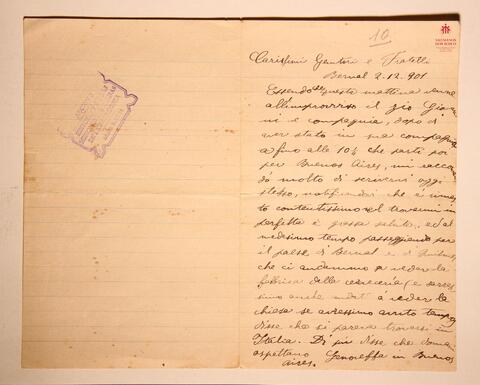 SALESIANOS
DON BOSCO
10
Carissimi Genitori e Fratelli
Bernal 2.12.901
Essendo questa mattina venu
all'improvviso il zio Giova
ni e compagnia, dopo d'
aver stato in sua compagnia
fino alle 10½ che partì poi
per Buenos Aires, mi racco
dò molto di scrivervi oggi
stesso, notificandovi che è rimas
to contentissimo nel trovarmi in
perfetta e grossa salute, ed al
medesimo tempo passeggiando per
il paese di Bernal e di Quilmes
che ci andammo a veder la
fabbrica della cerveceria e
simo anche a veder la
chiesa se avessimo avuto tempo
disse che si pareva trovarsi in
Italia. Di più disse che
aspettano Genoveffa in Buenos
Aires.